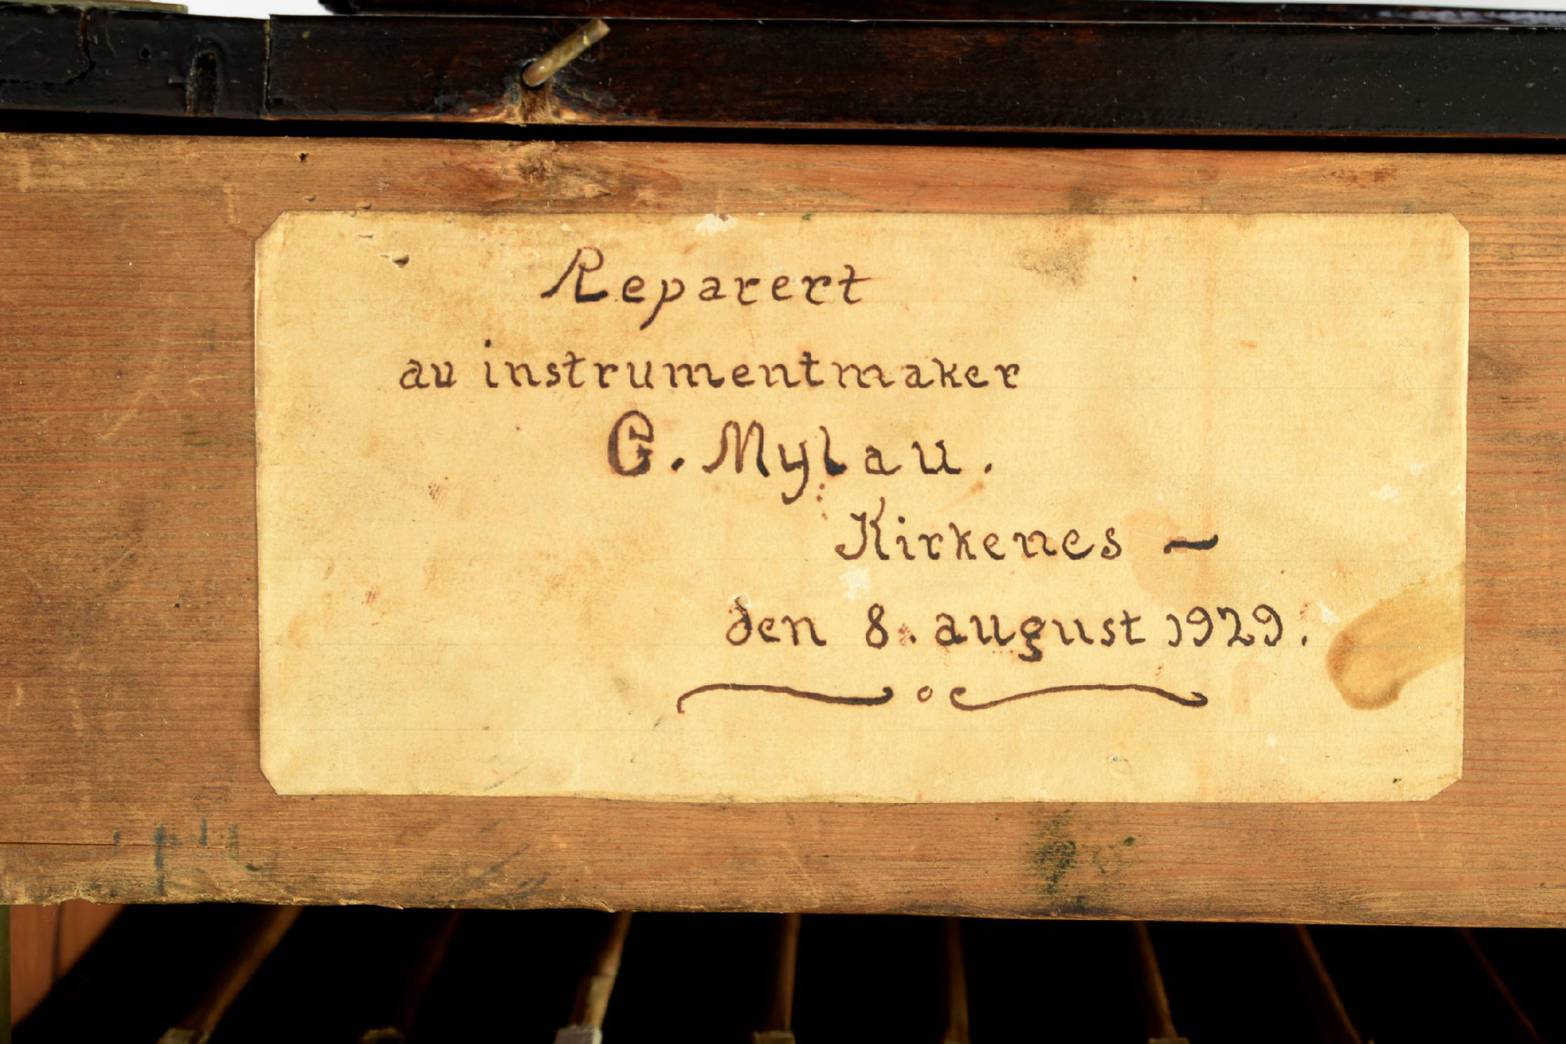 Reparert
av instrumentmaker
G. Mylau.
Kirkenes –
den 8. august 1929.